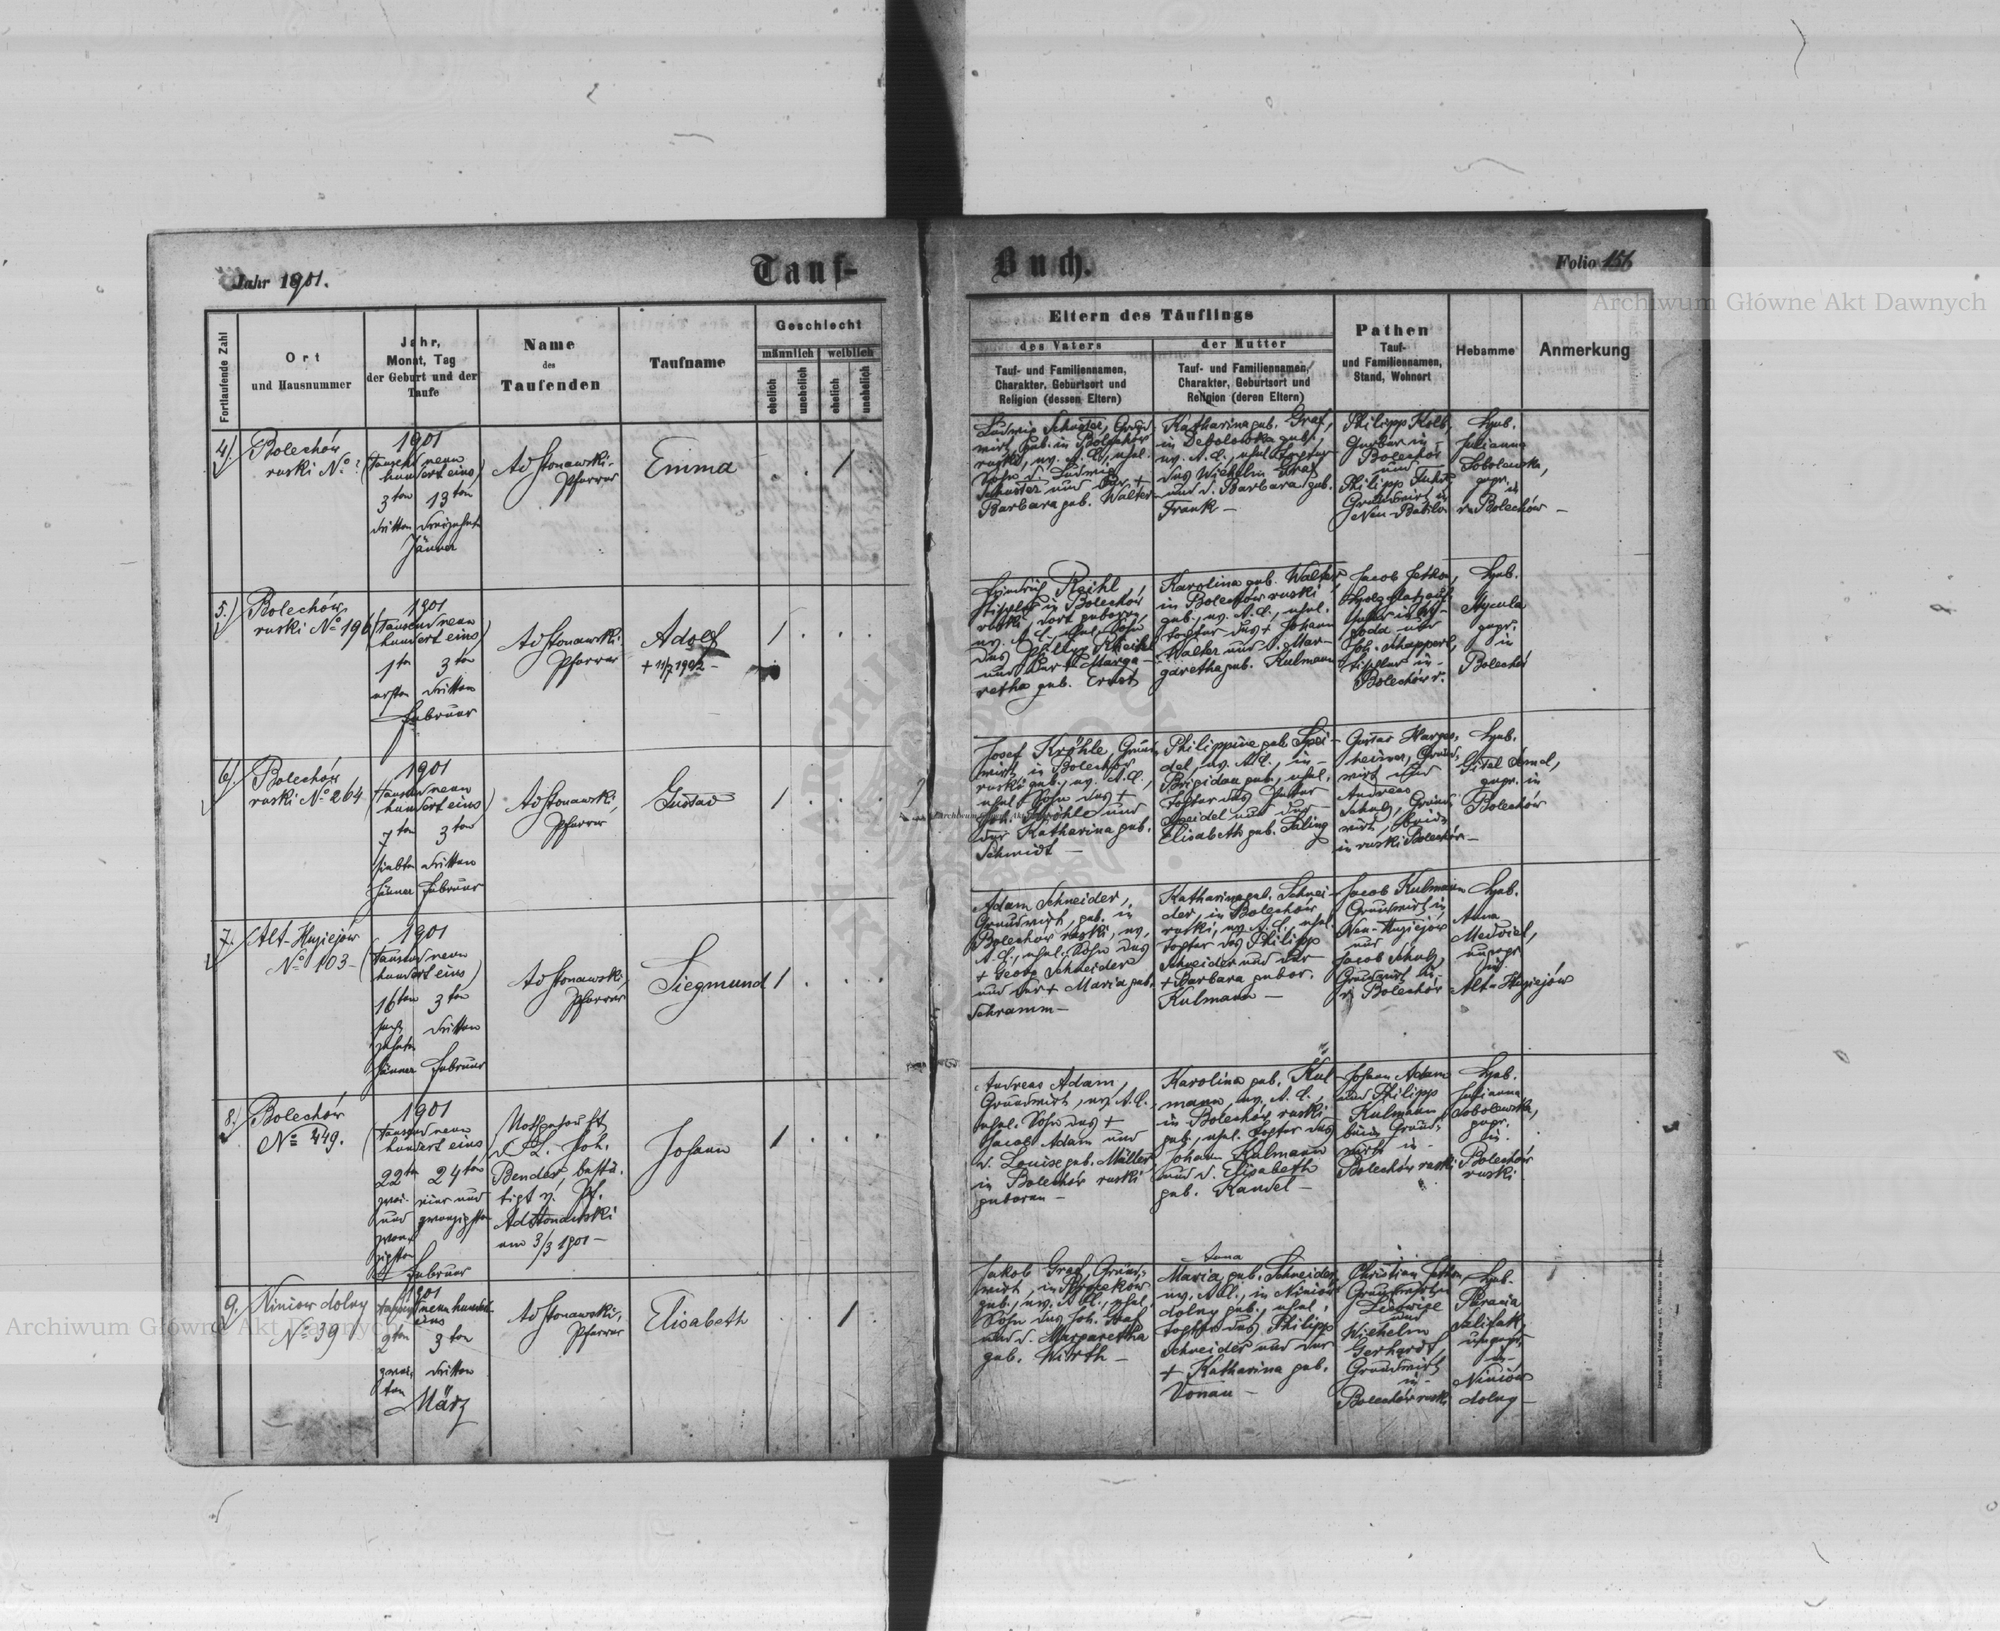 Jahr 1901.
Tauf-
Buch.
Folio 151
Archiwum Główne Akt Dawnych
Fortlaufende Zahl
Ort
und Hausnummer
Jahr,
Monat, Tag
der Geburt und der
Taufe
Name
des
Taufenden
Taufname
Geschlecht
männlich
weiblich
ehelich
unehelich
ehelich
unehelich
Eltern des Täuflings
des Vaters
Tauf- und Familiennamen,
Charakter, Geburtsort und
Religion (dessen Eltern)
der Mutter
Tauf- und Familiennamen,
Charakter, Geburtsort und
Religion (deren Eltern)
Pathen
Tauf-
und Familiennamen,
Stand, Wohnort
Hebamme
Anmerkung
4/.
Bolechów
ruski No ?
1901
(tausend neun
hundert eins)
3ten 13ten
dritten
Jänner
Pfarrer
Emma
1
Ludwig Schuster,
geb. in Bolechów
ruski, ev. A. C., ehel.
Sohn d. Ludwig
Schuster und der +
Barbara geb. Walter
Katharina geb. Graf,
in Debolowka geb.,
ev. A. C., ehel. Tochter
des Wilhelm Graf
und d. Barbara geb.
Frank –
Philipp Kolb,
in
Bolechów
und
Philipp
Grundwirt in
Neu-Babilon
Heb.
Julianna
Sobolewska,
gepr.
in
r. Bolechów –
5./
Bolechów
ruski No 196
1901
(tausend neun
hundert eins)
1ten 3ten
ersten dritten
Februar
Pfarrer
Adolf
+ 11/7 1902 –
1
Reihl,
in Bolechów
ruski, dort geboren,
ev. A. C., ehel. Sohn
des
und der + Marga-
retha geb. Ernst
Karolina geb. Walter,
in Bolechów ruski
geb., ev. A. C., ehel.
Tochter des + Johann
Walter und d. Mar-
garetha geb. Kulmann
Jacob
und
Joh. Schappert,
Tischler in
Bolechów r.
Heb.
gepr.
in
Bolechów
6/.
Bolechów
ruski No 264
1901
(tausend neun
hundert eins)
7ten 3ten
siebten dritten
Jänner Februar
Pfarrer
Gustav
1
Josef Kröhle, Grund-
wirt, in Bolechów
ruski geb., ev. A. C.,
ehel. Sohn des +
Joh. Kröhle und
der Katharina geb.
Schmidt –
Philippine geb. Spei-
del, ev. A. C., in
Brigidau geb., ehel.
Tochter des Peter
Speidel und der
Elisabeth geb. Saling
Gustav
heimer, Grund-
wirt und
Andreas
Schulz, Grund-
wirt, beide
in ruski Bolechów –
Heb.
gepr. in
Bolechów
Archiwum Główne Akt Dawnych
7/.
Alt-Hujiejów
No 103 –
1901
(tausend neun
hundert eins)
16ten 3ten
sech-
zehnten dritten
Jänner Februar
Pfarrer
Siegmund
1
Adam Schneider,
Grundwirt, geb. in
Bolechów ruski, ev.
A. C., ehel. Sohn des
+ Georg Schneider
und der + Maria geb.
Schramm –
Katharina geb. Schnei-
der, in Bolechów
ruski, ev. A. C., ehel.
Tochter des Philipp
Schneider und der
+ Barbara gebor.
Kulmann –
Jacob Kulmann
Grundwirt in
Neu-Hujiejów
und
Jacob Schulz,
Grundwirt in
r. Bolechów
Heb.
Anna
Medviel,
ungepr.
in
Alt-Hujiejów
8/.
Bolechów
No 249.
1901
(tausend neun
hundert eins)
22ten 24ten
zwei- vier und
und zwanzigsten
zwan-
zigsten
Februar
Nothgetauft
d. L. Joh.
Bender, bestä-
tigt v. Pf.
am 3/3 1901 –
Johann
1
Andreas Adam,
Grundwirt, ev. A. C.,
ehel. Sohn des +
Jacob Adam und
d. Louise geb. Müller
in Bolechów ruski
geboren –
Karolina geb. Kul-
mann, ev. A. C.,
in Bolechów ruski
geb., ehel. Tochter des
Johann Kulmann
und d. Elisabeth
geb. Kandel –
Johann Adam
und Philipp
Kulmann
beide Grund-
wirte in
Bolechów ruski
Heb.
Julianna
Sobolewska,
gepr.
in
Bolechów
ruski
9.
Niniow dolny
No 39
1901
neunhundert
eins
2ten 3ten
zwei- dritten
ten
März
Pfarrer
Elisabeth
1
Jakob Graf, Grund-
wirt, in
geb., ev. A. C., ehel.
Sohn des Joh. Graf
und d. Margaretha
geb. Wirth –
Anna
Maria geb. Schneider,
ev. A. C., in Niniów
dolny geb., ehel.
Tochter des Philipp
Schneider und der
+ Katharina geb.
Donau –
Christian
und
Wilhelm
Gerhardt,
Grundwirt
in
Bolechów ruski
Heb.
Parania
ungepr.
in
Niniów
dolny –
Archiwum Główne Akt Dawnych